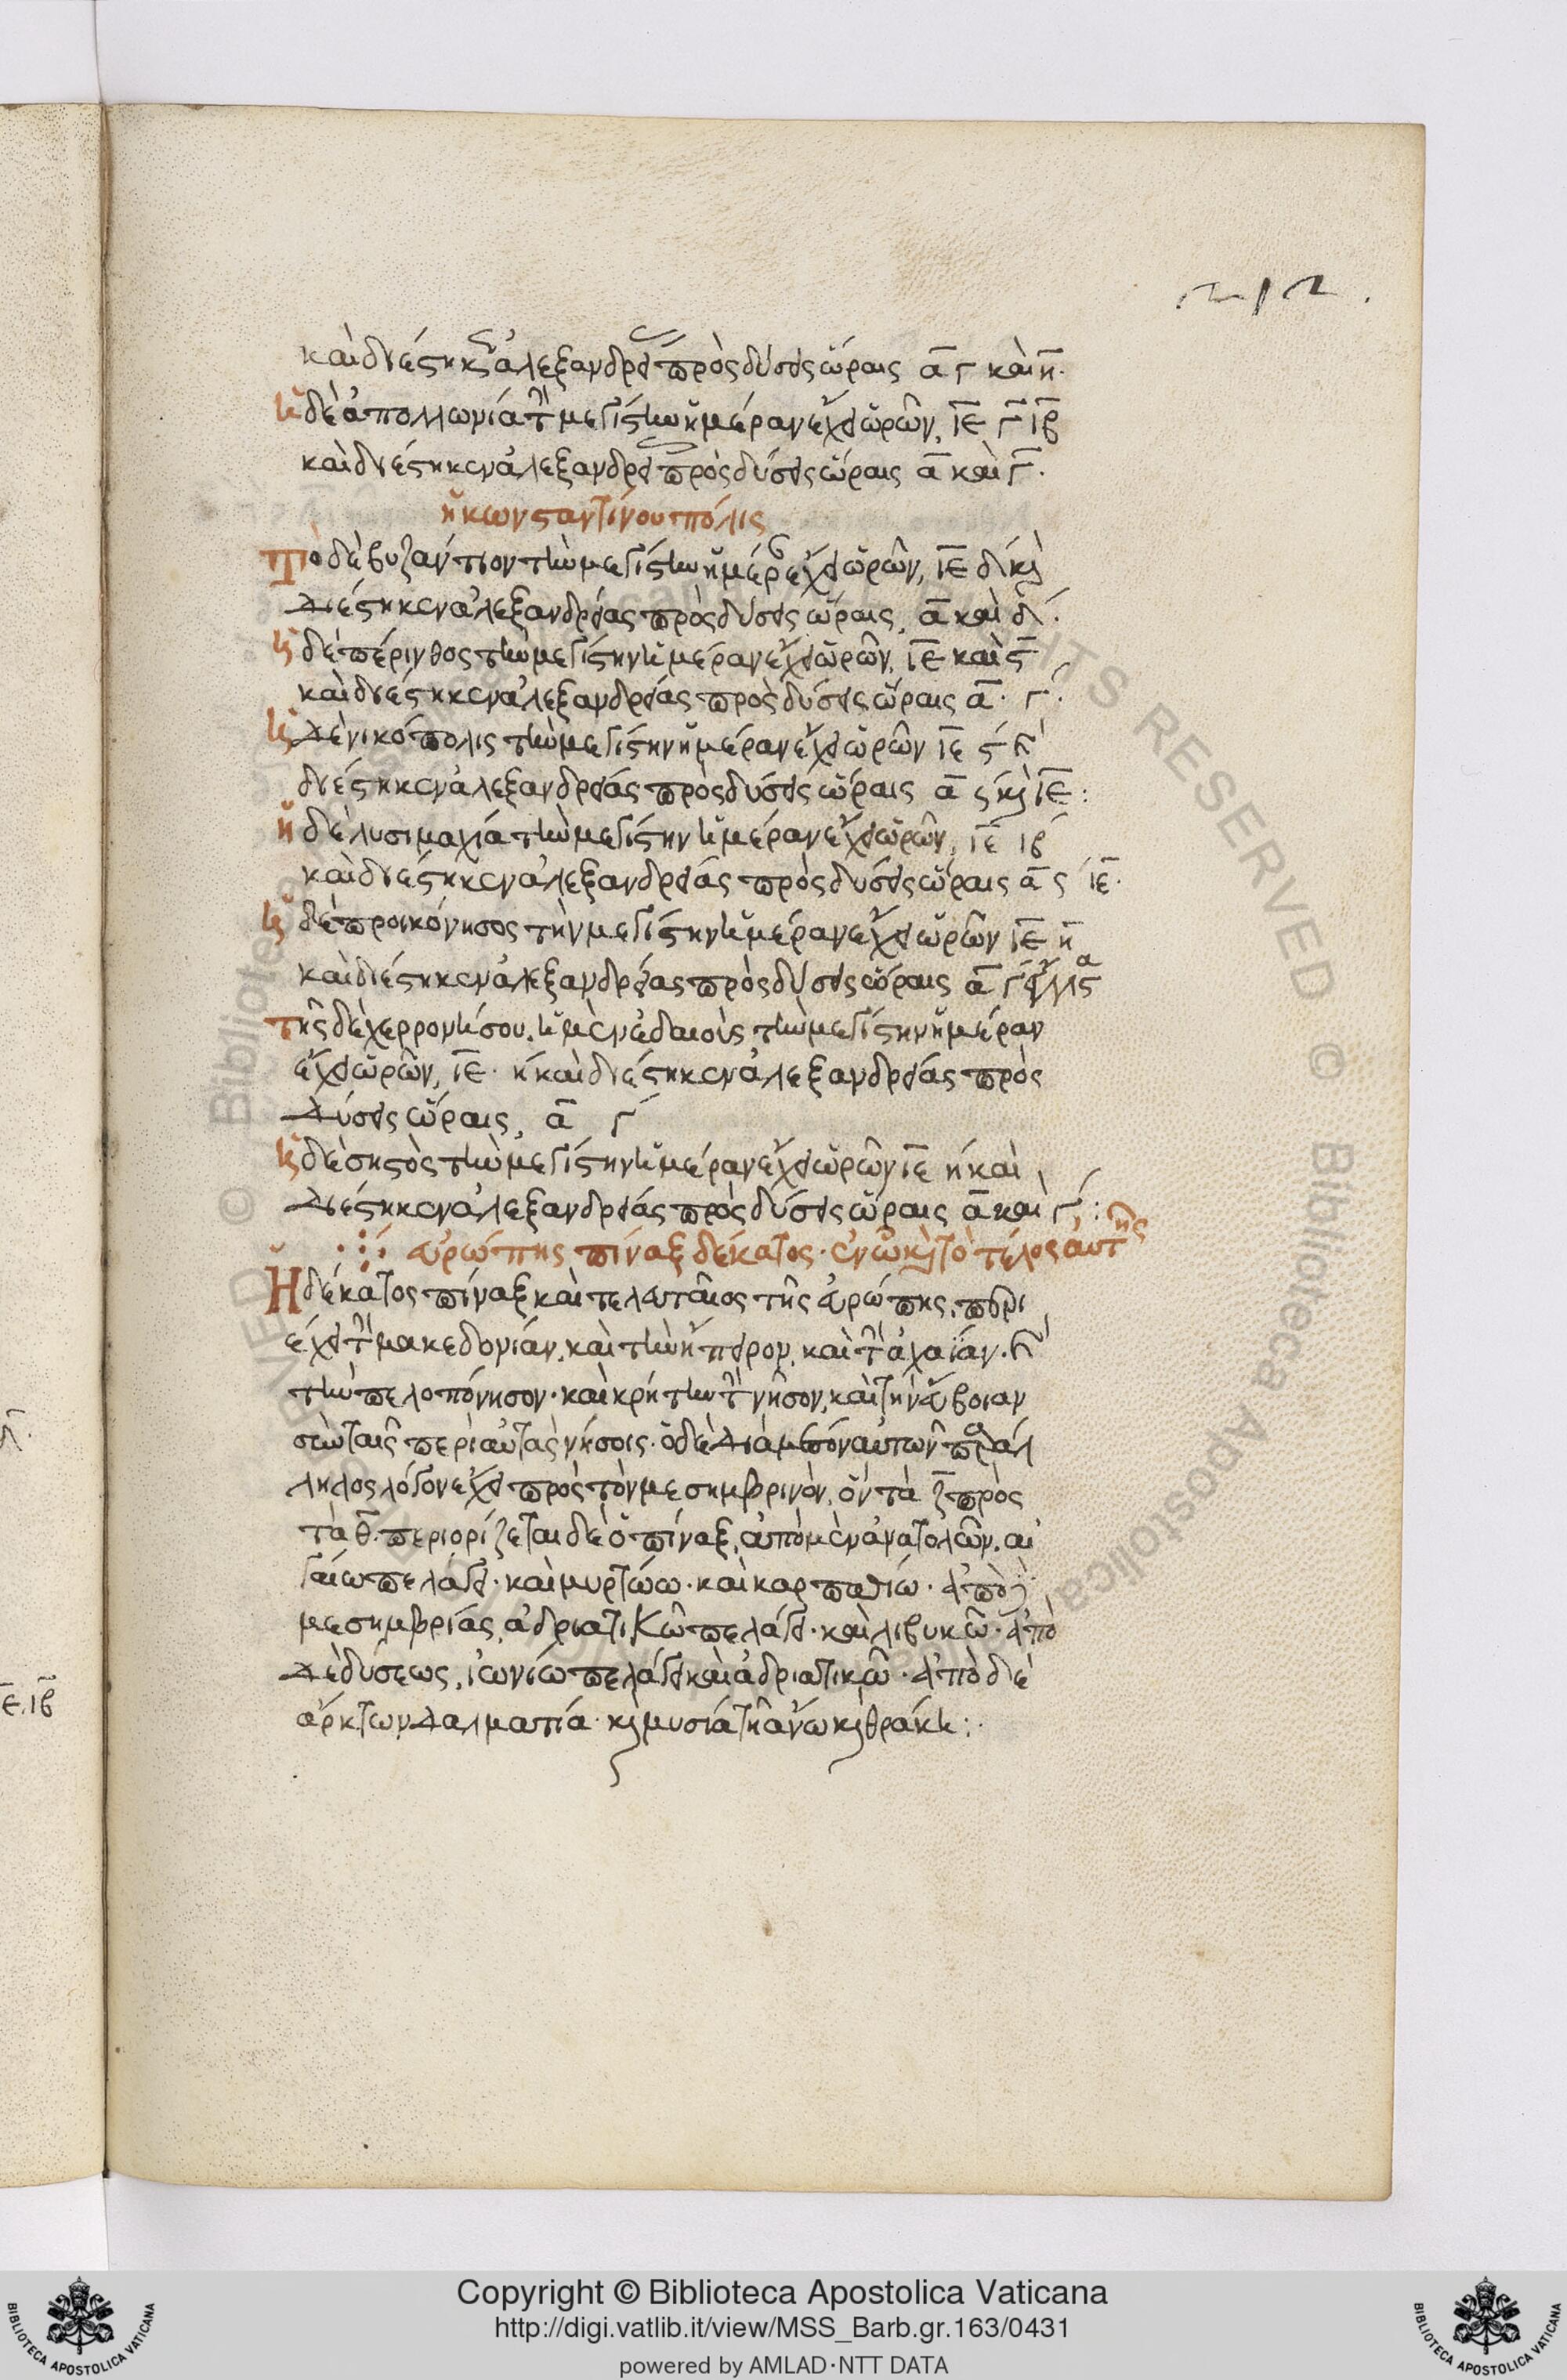 212.
καὶ διέστηκεν ἀλεξανδρείας πρὸς δύσεις ὥραις α γ καὶ η.
ἡ δὲ ἀπολλωνία τὴν μεγίστην ἡμέραν ἔχει ὡρῶν, ιε γ ιβ
καὶ διέστηκεν ἀλεξανδρείας πρὸς δύσεις ὥραις α καὶ γ.
ἡ κωνσταντίνου πόλις
Τὸ δὲ βυζάντιον τὴν μεγίστην ἡμέραν ἔχει ὡρῶν, ιε δ καὶ
διέστηκεν ἀλεξανδρείας πρὸς δύσεις ὥραις, α καὶ δ.
ἡ δὲ πέρινθος τὴν μεγίστην ἡμέραν ἔχει ὡρῶν, ιε καὶ ς
καὶ διέστηκεν ἀλεξανδρείας πρὸς δύσεις ὥραις α. γ.
ἡ δὲ νικόπολις τὴν μεγίστην ἡμέραν ἔχει ὡρῶν ιε ς καὶ
διέστηκεν ἀλεξανδρείας πρὸς δύσεις ὥραις α ς καὶ ιε:
ἡ δὲ λυσιμαχία τὴν μεγίστην ἡμέραν ἔχει ὡρῶν, ιε ιβ
καὶ διέστηκεν ἀλεξανδρείας πρὸς δύσεις ὥραις α ς ιε.
ἡ δὲ προικόνησος τὴν μεγίστην ἡμέραν ἔχει ὡρῶν ιε η
καὶ διέστηκεν ἀλεξανδρείας πρὸς δύσεις ὥραις α γ
τῆς δὲ χερρονήσου. ἡ μὲν ἐλαιοὺς τὴν μεγίστην ἡμέραν
ἔχει ὡρῶν, ιε. η καὶ διέστηκεν ἀλεξανδρείας πρὸς
δύσεις ὥραις, α γ
ἡ δὲ σηστὸς τὴν μεγίστην ἡμέραν ἔχει ὡρῶν ιε η καὶ
διέστηκεν ἀλεξανδρείας πρὸς δύσεις ὥραις α καὶ γ:
εὐρώπης πίναξ δέκατος. ἐν ὧ καὶ τὸ τέλος αὐτῆς
Ὁ δέκατος πίναξ καὶ τελευταῖος τῆς εὐρώπης, περι
έχει τὴν μακεδονίαν, καὶ τὴν ἤπειρον, καὶ τὴν ἀχαΐαν. καὶ
τὴν πελοπόνησον. καὶ κρήτην τὴν νῆσον, καὶ τὴν εὔβοιαν
σὺν ταῖς περὶ αὐτὰς νήσοις. ὁ δὲ διὰ μέσον αὐτῶν παράλ
ληλος λόγον ἔχει πρὸς τὸν μεσημβρινὸν, ὃν τὰ ζ πρὸς
τὰ θ. περιορίζεται δὲ ὁ πίναξ, ἀπὸ μὲν ἀνατολῶν. αἰ
γαίω πελάγει. καὶ μυρτώω. καὶ καρπαθίω. ἀπὸ δὲ
μεσημβρίας, ἀδριατικῶ πελάγει. καὶ λιβυκῶ. ἀπὸ
δὲ δύσεως, ἰωνίω πελάγει καὶ ἀδριατικῶ. ἀπὸ δὲ
ἄρκτων δαλματία. καὶ μυσία τῆ ἄνω καὶ θράκη:.
ε. ιβ
Copyright © Biblioteca Apostolica Vaticana
http://digi.vatlib.it/view/MSS_Barb.gr.163/0431
powered by AMLAD·NTT DATA